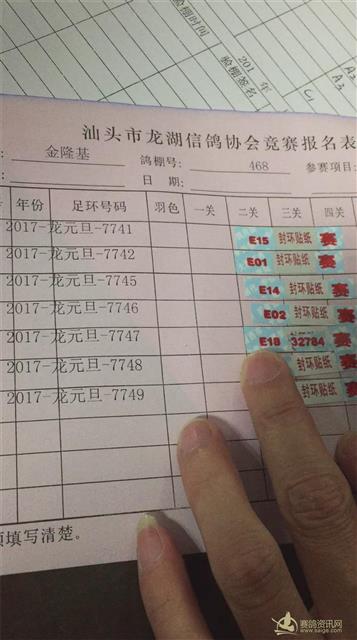 验棚时间
验棚签名
201 年
C1
A3
汕头市龙湖信鸽协会竞赛报名表
金隆基 鸽棚号: 468 参赛项目:
日 期:
年份 足环号码 羽色 一关 二关 三关 四关
2017-龙元旦-7741 E15 封环贴纸 赛
2017-龙元旦-7742 E01 封环贴纸 赛
2017-龙元旦-7745 E14 封环贴纸 赛
2017-龙元旦-7746 E02 封环贴纸 赛
2017-龙元旦-7747 E18 32784 赛
2017-龙元旦-7748 封环贴纸 赛
2017-龙元旦-7749 封环贴纸 赛
填写清楚。
赛鸽资讯网
www.saige.com